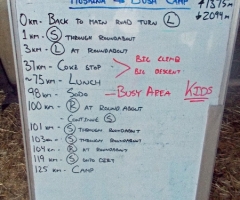 BUSH CAMP
+1375m
+2094m
0km - BACK TO MAIN ROAD TURN L
1km - S THROUGH ROUNDABOUT
3km - L AT ROUNDABOUT
37km - COKE STOP BIG CLIMB
BIG DESCENT
~75km - LUNCH
98km - SODO - BUSY AREA KIDS
100km - R AT ROUND ABOUT
- CONTINUE S
101km - S THROUGH ROUNDABOUT
103km - S THROUGH ROUNDABOUT
104km - R AT ROUNDABOUT
119km - S ONTO DIRT
125km - CAMP